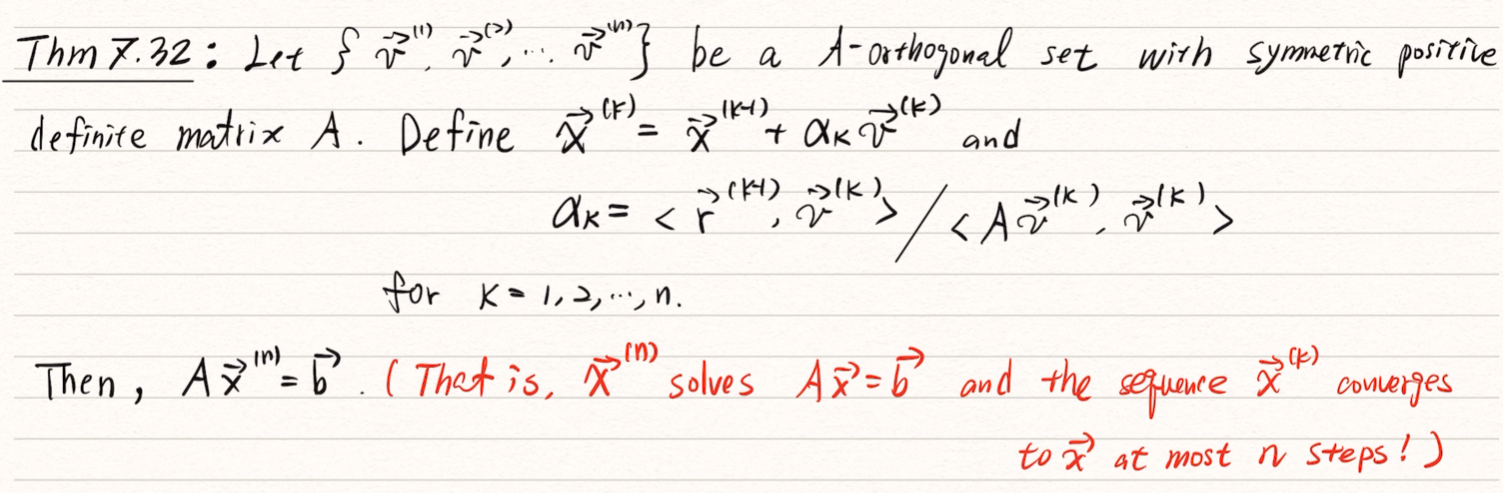 Thm 7.32: Let { v⃗⁽¹⁾, v⃗⁽²⁾, ... v⃗⁽ⁿ⁾} be a A-orthogonal set with symmetric positive
definite matrix A. Define x⃗⁽ᵏ⁾ = x⃗⁽ᵏ⁻¹⁾ + αₖ v⃗⁽ᵏ⁾ and
αₖ = < r⃗⁽ᵏ⁻¹⁾, v⃗⁽ᵏ⁾ > / < A v⃗⁽ᵏ⁾, v⃗⁽ᵏ⁾ >
for k = 1, 2, ..., n.
Then, A x⃗⁽ⁿ⁾ = b⃗. (That is, x⃗⁽ⁿ⁾ solves A x⃗ = b⃗ and the sequence x⃗⁽ᵏ⁾ converges
to x⃗ at most n steps!)